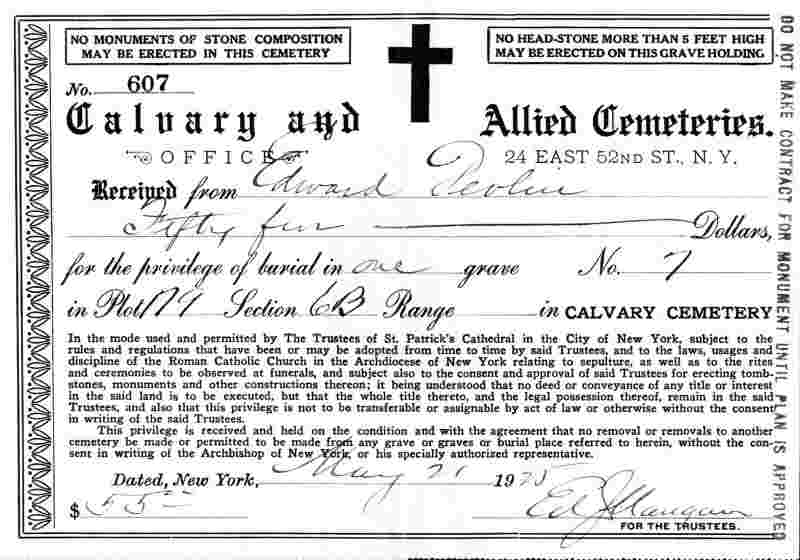 NO MONUMENTS OF STONE COMPOSITION
MAY BE ERECTED IN THIS CEMETERY
NO HEAD-STONE MORE THAN 5 FEET HIGH
MAY BE ERECTED ON THIS GRAVE HOLDING
No. 607
Calvary and Allied Cemeteries.
OFFICE 24 EAST 52ND ST., N. Y.
Received from Edward Devlin
Fifty five Dollars,
for the privilege of burial in one grave No. 7
in Plot Section 6B Range in CALVARY CEMETERY
In the mode used and permitted by The Trustees of St. Patrick's Cathedral in the City of New York, subject to the
rules and regulations that have been or may be adopted from time to time by said Trustees, and to the laws, usages and
discipline of the Roman Catholic Church in the Archdiocese of New York relating to sepulture, as well as to the rites
and ceremonies to be observed at funerals, and subject also to the consent and approval of said Trustees for erecting tomb-
stones, monuments and other constructions thereon; it being understood that no deed or conveyance of any title or interest
in the said land is to be executed, but that the whole title thereto, and the legal possession thereof, remain in the said
Trustees, and also that this privilege is not to be transferable or assignable by act of law or otherwise without the consent
in writing of the said Trustees.
This privilege is received and held on the condition and with the agreement that no removal or removals to another
cemetery be made or permitted to be made from any grave or graves or burial place referred to herein, without the con-
sent in writing of the Archbishop of New York, or his specially authorized representative.
Dated, New York, May 21 1925
$ 55
FOR THE TRUSTEES.
DO NOT MAKE CONTRACT FOR MONUMENT UNTIL PLAN IS APPROVED